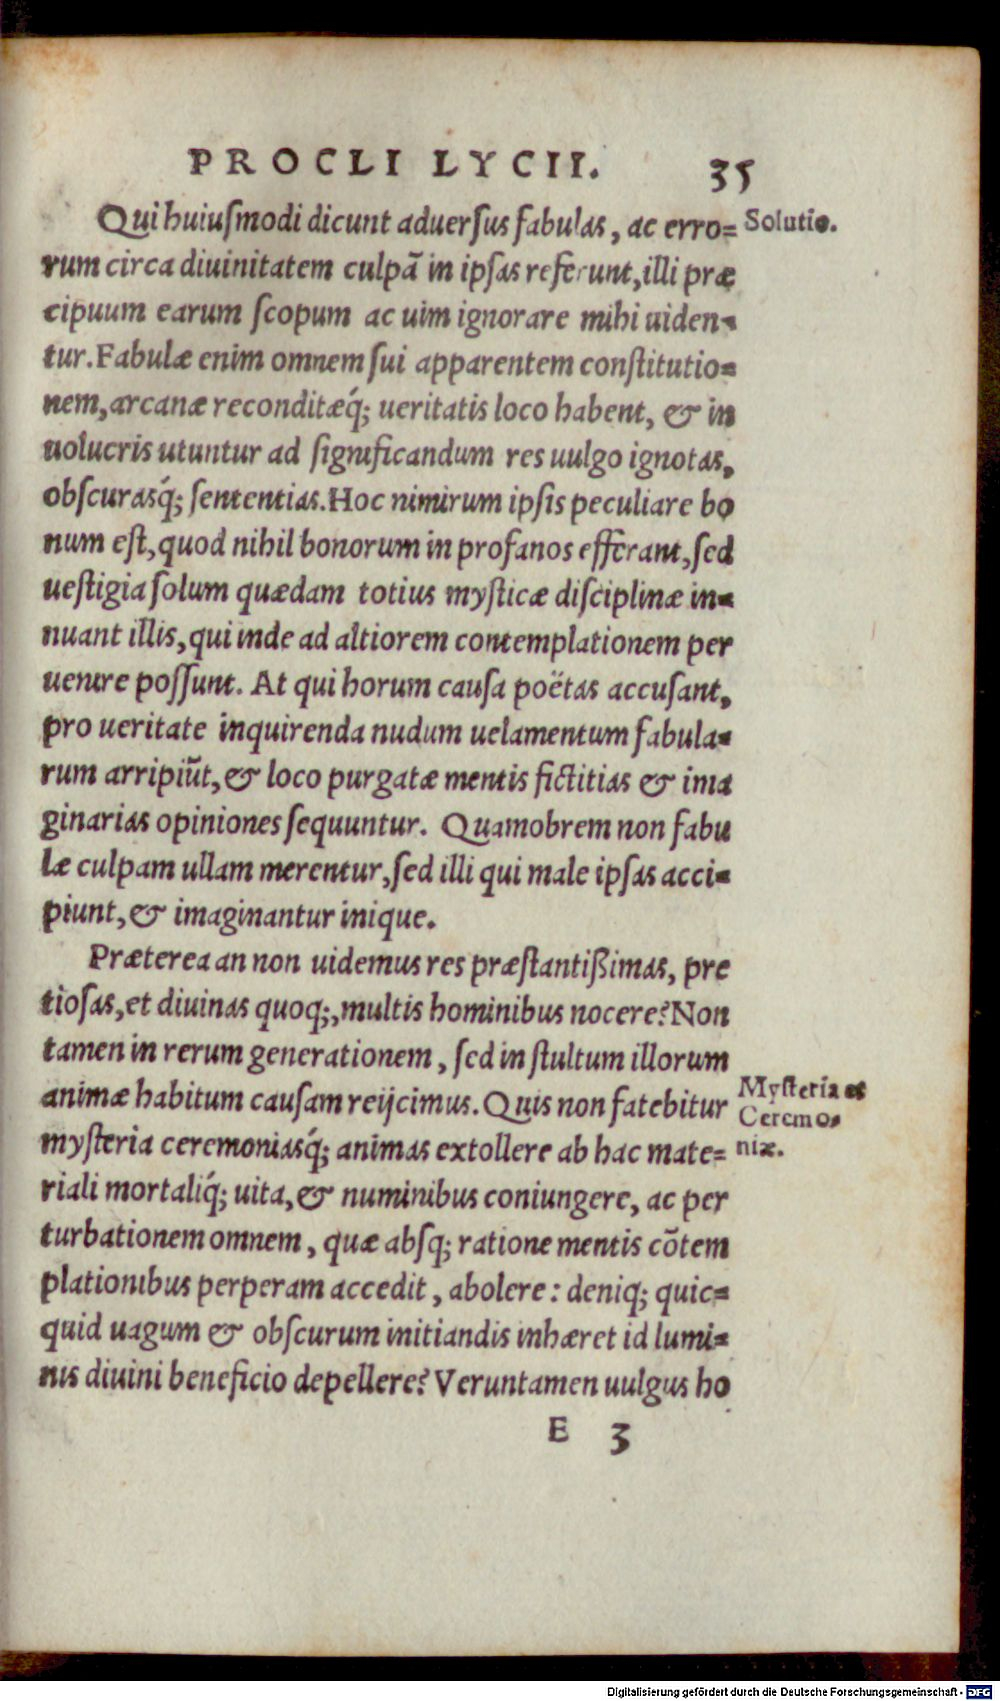 PROCLI LYCII. 35
Qui huiusmodi dicunt aduersus fabulas, ac erro= Solutio.
rum circa diuinitatem culpā in ipsas referunt, illi præ
cipuum earum scopum ac uim ignorare mihi uiden=
tur. Fabulæ enim omnem sui apparentem constitutio=
nem, arcanæ reconditæq́; ueritatis loco habent, & in
uolucris utuntur ad significandum res uulgo ignotas,
obscurasq́; sententias. Hoc nimirum ipsis peculiare bo
num est, quod nihil bonorum in profanos efferant, sed
uestigia solum quædam totius mysticæ disciplinæ in=
nuant illis, qui inde ad altiorem contemplationem per
uenire possunt. At qui horum causa poëtas accusant,
pro ueritate inquirenda nudum uelamentum fabula=
rum arripiūt, & loco purgatæ mentis fictitias & ima
ginarias opiniones sequuntur. Quamobrem non fabu
læ culpam ullam merentur, sed illi qui male ipsas acci=
piunt, & imaginantur inique.
Præterea an non uidemus res præstantißimas, pre
tiosas, et diuinas quoq;, multis hominibus nocere? Non
tamen in rerum generationem, sed in stultum illorum
animæ habitum causam reijcimus. Quis non fatebitur
mysteria ceremoniasq́; animas extollere ab hac mate=
riali mortaliq́; uita, & numinibus coniungere, ac per
turbationem omnem, quæ absq; ratione mentis cōtem
plationibus perperam accedit, abolere: deniq; quic=
quid uagum & obscurum initiandis inhæret id lumi=
nis diuini beneficio depellere? Veruntamen uulgus ho
Mysteria et
Ceremo=
niæ.
E 3
Digitalisierung gefördert durch die Deutsche Forschungsgemeinschaft - DFG